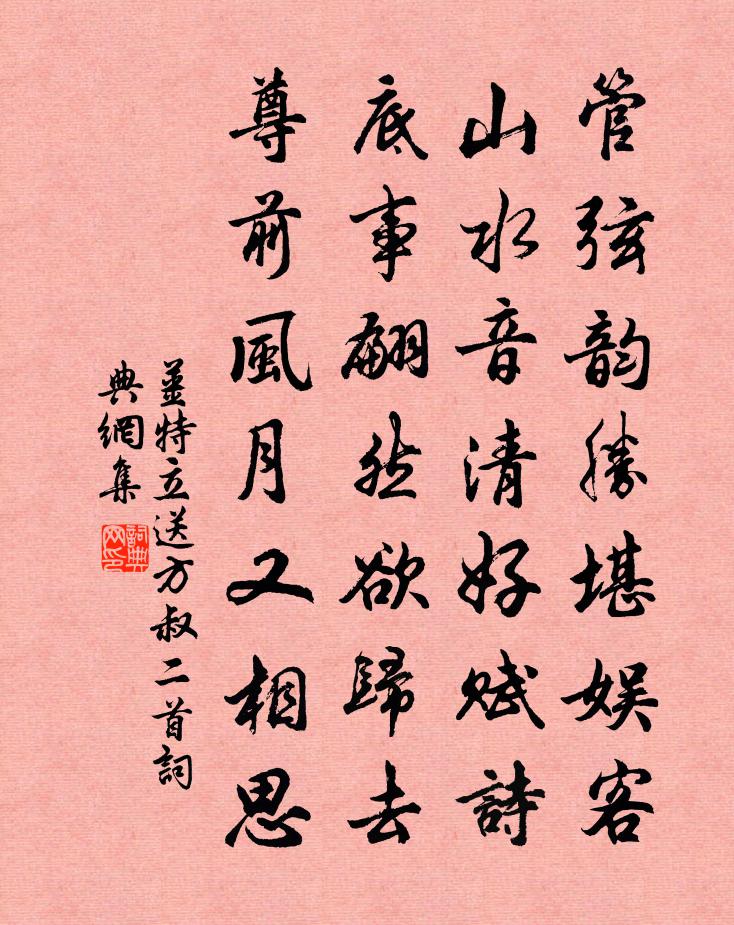 管弦韵勝堪娱客
山水音清好赋詩
底事翩然欲歸去
尊前風月又相思
薑特立送方叔二首詞
典網集
詞典
网印